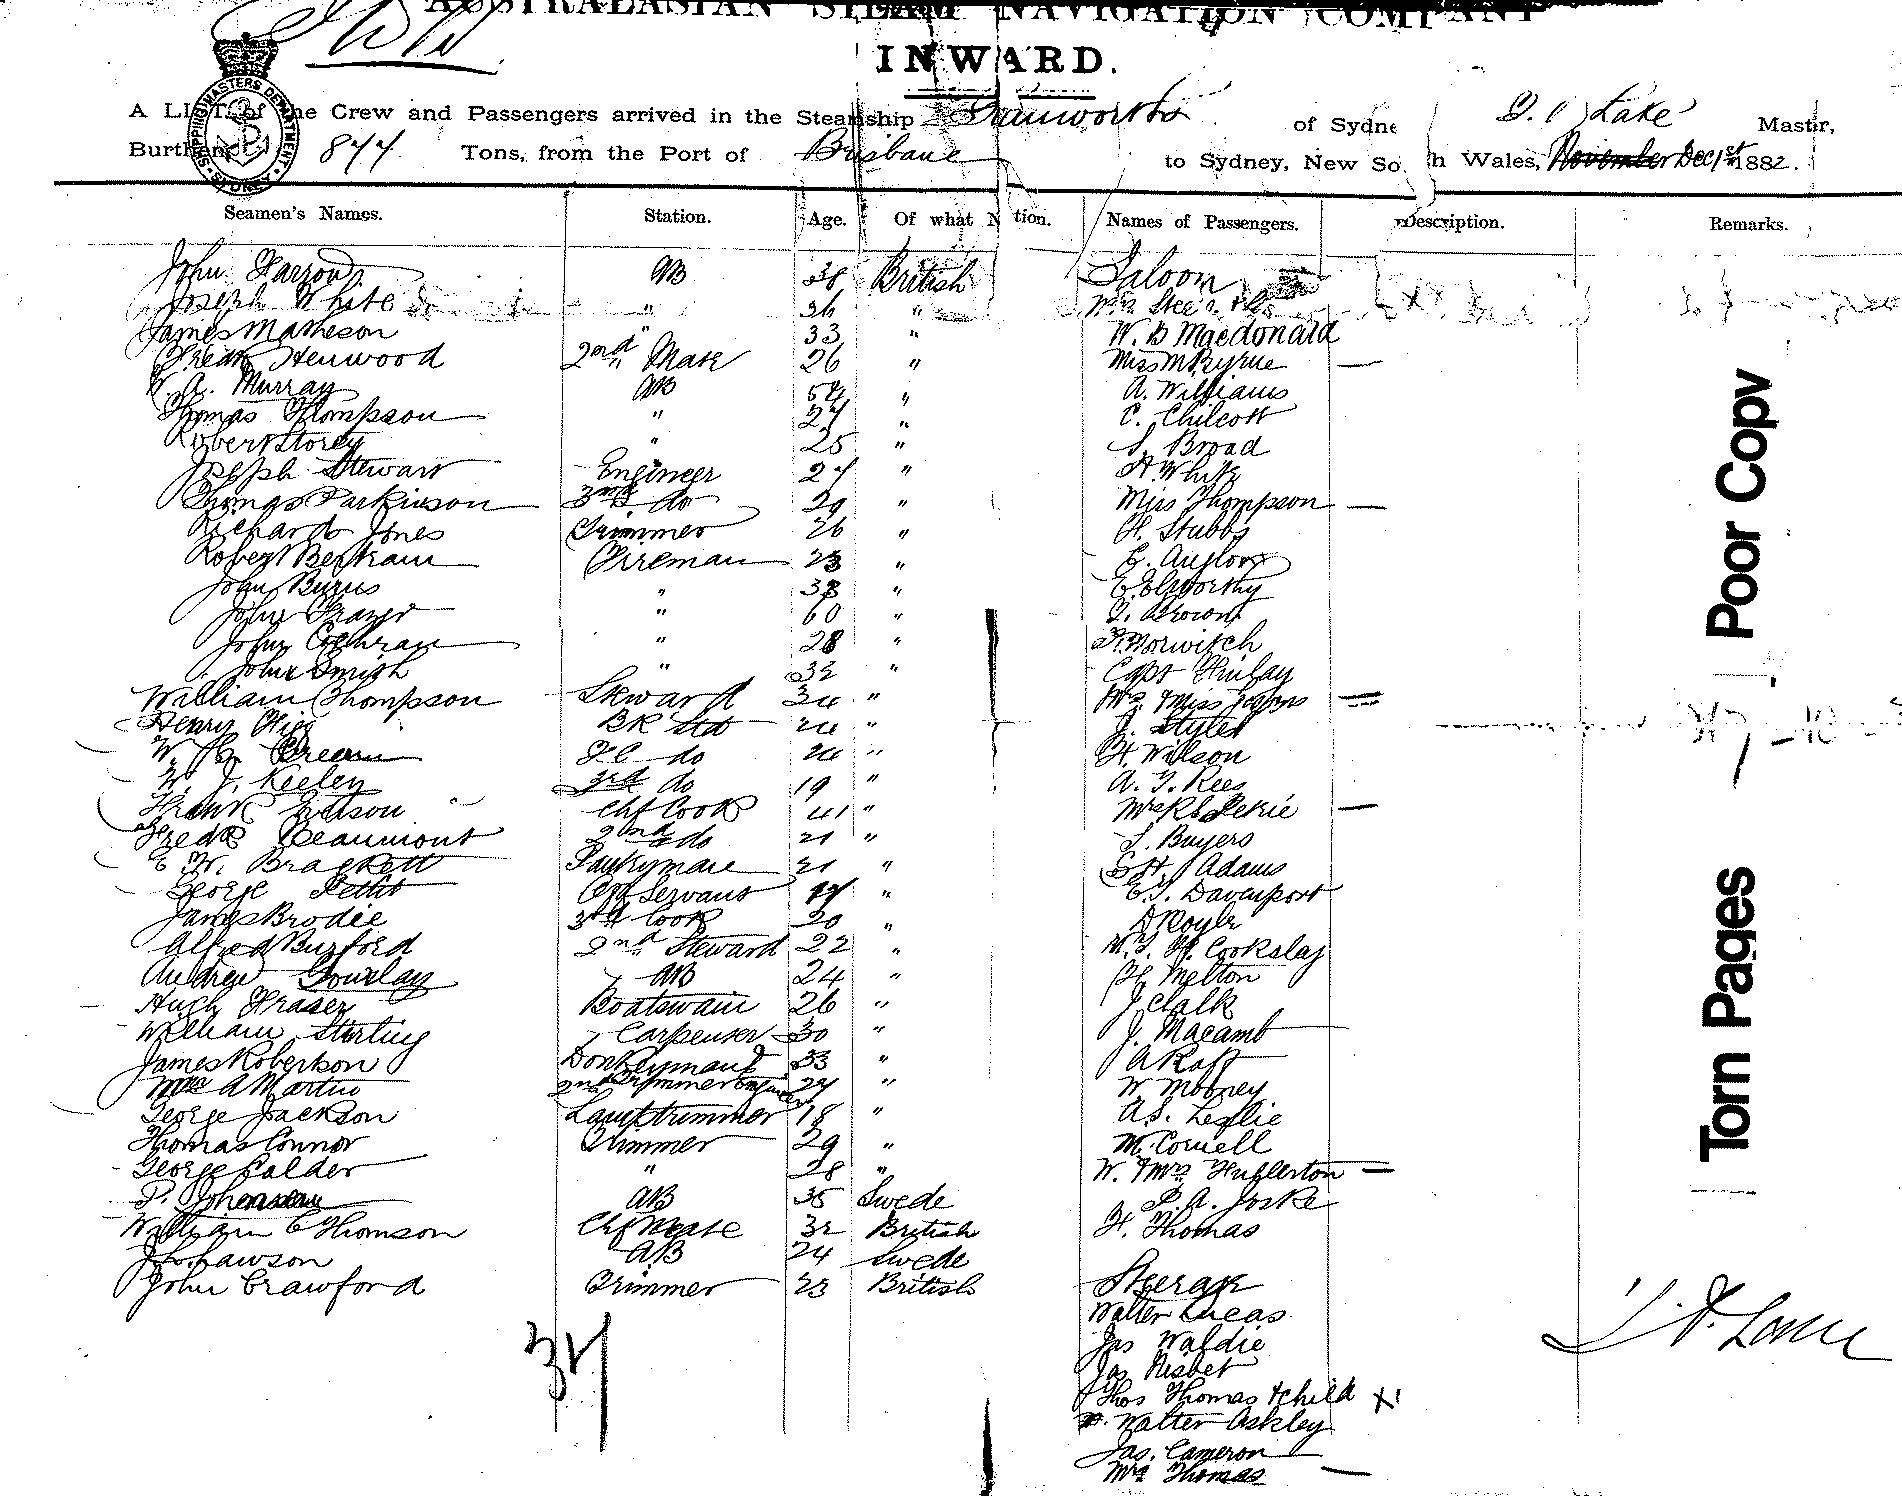 AUSTRALASIAN STEAM NAVIGATION COMPANY
INWARD.
A LIST of the Crew and Passengers arrived in the Steamship of Sydne Lake Master,
Burthen 844 Tons, from the Port of Brisbane to Sydney, New So h Wales, November Dec 1st 1882.
SHIPPING MASTERS DEPARTMENT SYDNEY
Seamen's Names. Station. Age. Of what N tion. Names of Passengers. Description. Remarks.
John Farrow AB 38 British Saloon
Joseph White " 36 "
James Matheson " 33 " W. B Macdonald
Fredk Henwood 2nd Mate 26 " Miss McByrne —
W. A. Murray AB 54 " A. Williams
Thomas Thompson " 27 " C. Chilcott
Robert Storey " 25 " S. Broad
Joseph Stewart Engineer 27 " A White
Thomas Parkinson 3rd do 29 " Miss Thompson —
Richard Jones Trimmer 26 " H. Stubbs
Robert Bertram Fireman 23 "
John Burns " 38 " E. Elworthy
John Frazer " 60 " T. Brown
John Cochran " 28 " Norwitch
John Smith " 32 " Capt Finlay
William Thompson Steward 34 " Mrs & Miss
Henry BK Std 24 " J. Styles
W. do 24 " H. Wilson
W. J. Keeley 3rd do 19 " A. T. Rees
Frank Watson Chf Cook 41 " Mrs —
Fredk Beaumont 2nd do 21 " S. Buyers
E. W. Brackett Pantryman 21 " Adams
George Pettit Servant 17 " E. T. Davenport
James Brodie 3rd Cook 20 "
Alfred Burford 2nd Steward 22 " Cookslay
Andrew Gourlay AB 24 " H. Melton
Hugh Fraser Boatswain 26 " J Clalk
William Stirling Carpenter 30 " J. Macamb
James Robertson Donkeyman 33 "
Wm A Martin 2nd 27 " W Mooney
George Jackson Lamptrimmer 18 " A S. Leslie
Thomas Connor Trimmer 29 " M. Cornell
George Calder " 28 " W. & Mrs Fullerton —
P. AB 35 Swede P. A. Joske
William C Thomson Chf Mate 32 British H. Thomas
Lawson AB 24 Swede
John Crawford Trimmer 23 British Steerage
Walter Lucas
Jas Waldie
Jas Nisbet
Thos Thomas & child X
Walter Askley
Jas. Cameron
Mrs Thomas —
37
Poor Copy
Torn Pages